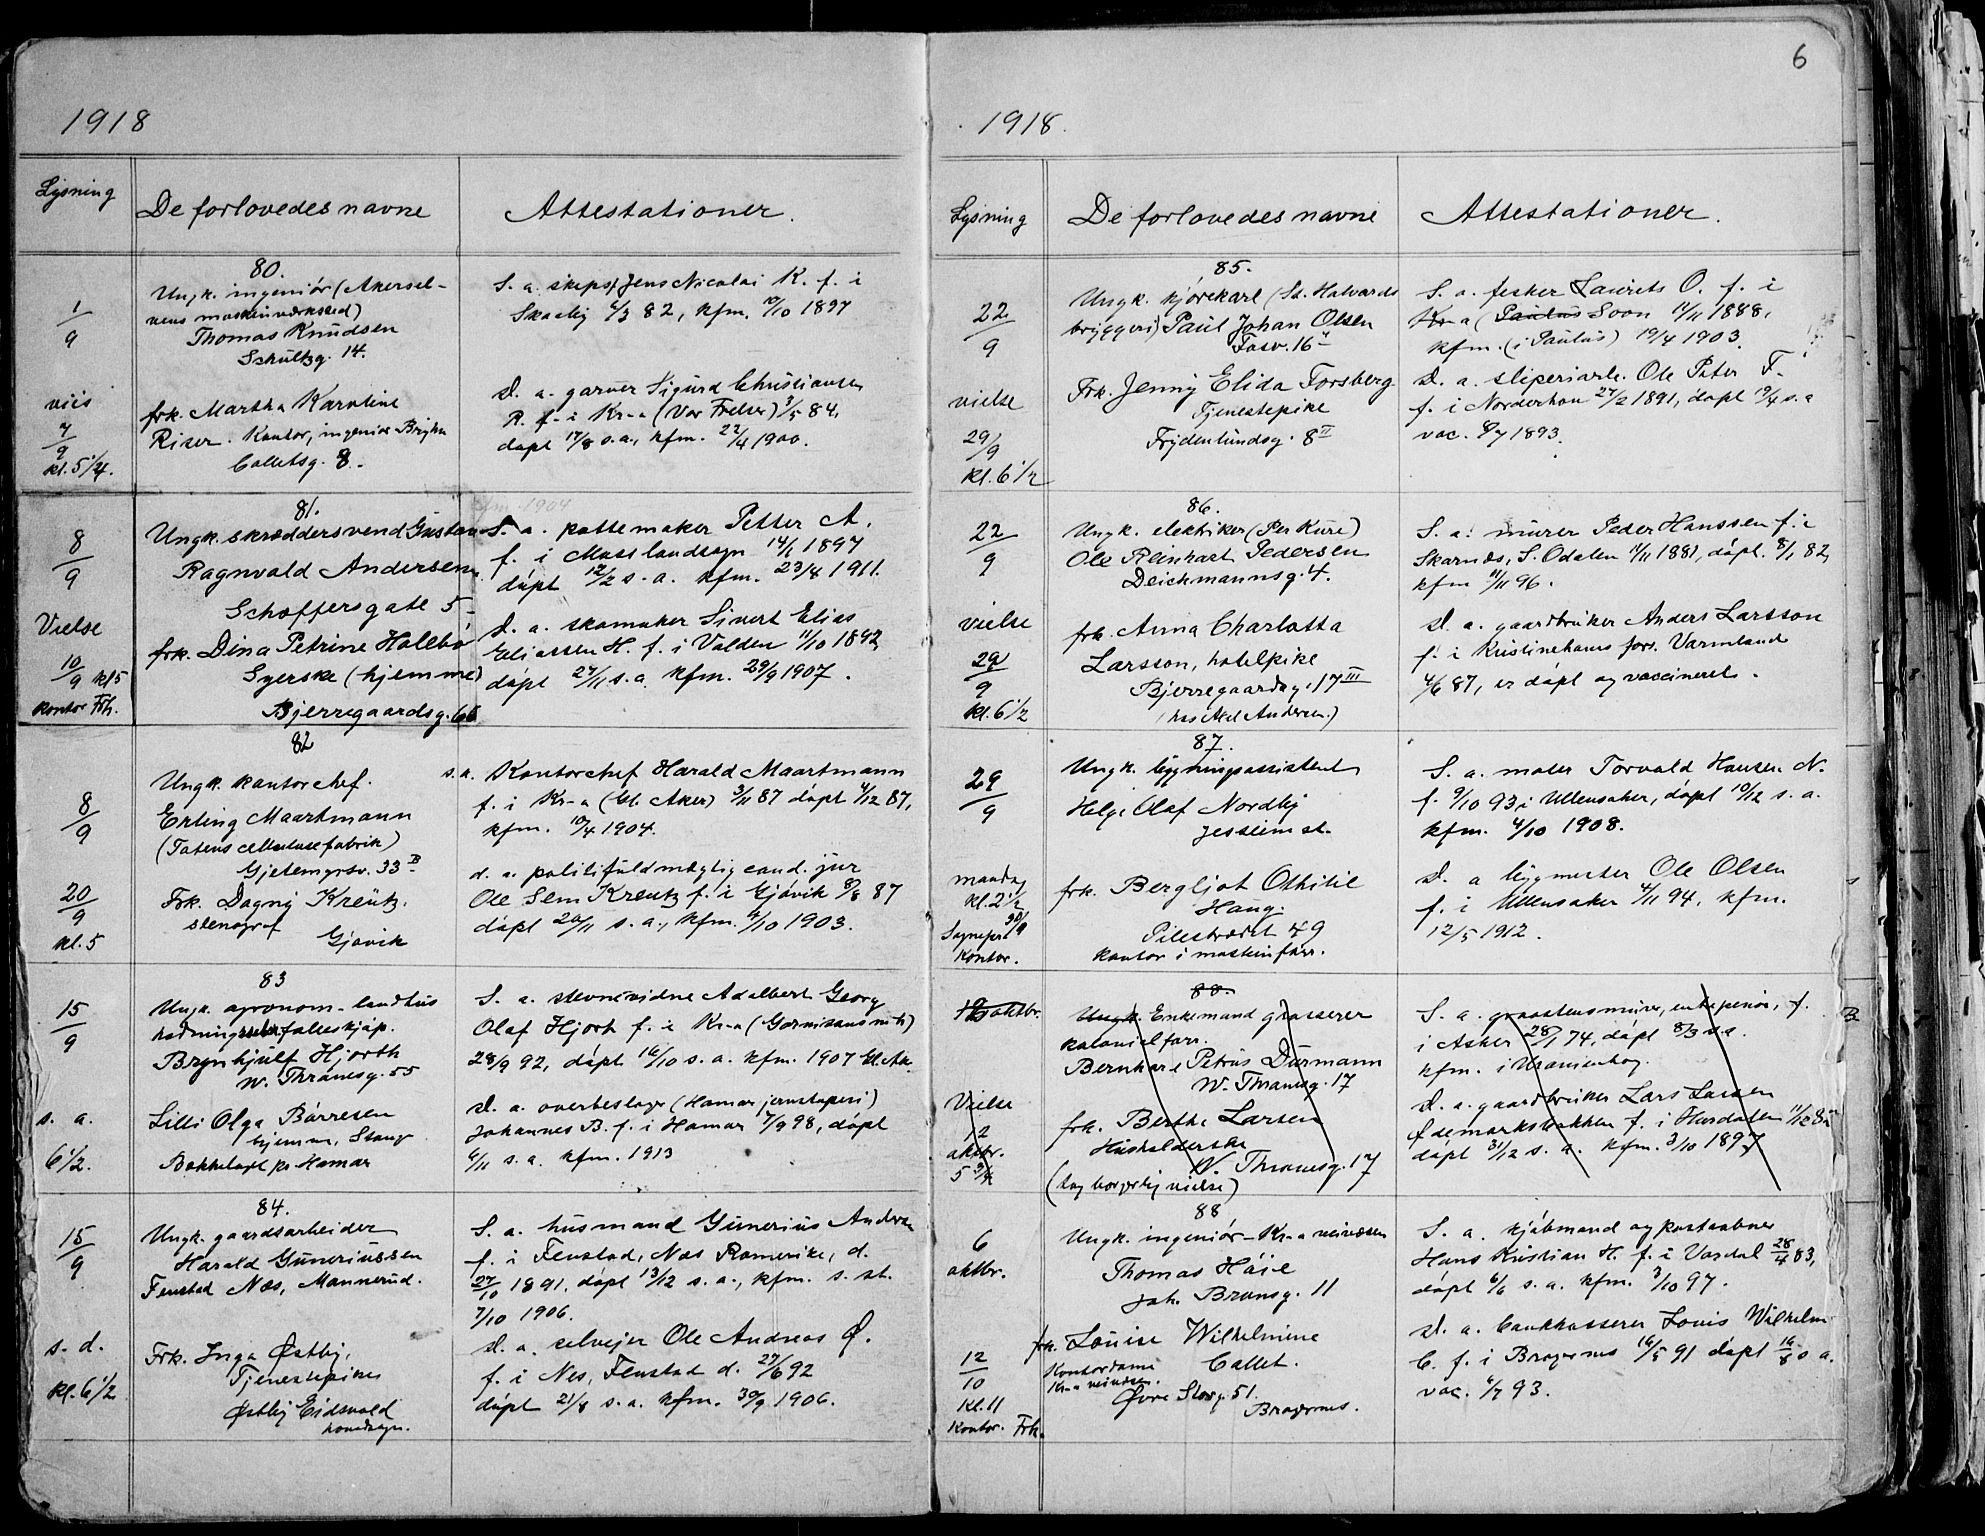 6
1918
Lysning
De forlovedes navne
Attestationer.
80.
1/9
Ungk. ingeniör (Akersel-
vens maskinværksted)
Thomas Knudsen
Schultzg. 14.
S. a. skipsf. Jens Nicolai K. f. i
82, kfm. 10/10 1897
viès
7/9
kl. 5 1/4.
frk. Martha Karoline
Riser. Kontor, ingeniör
Colletsg. 8.
d. a. garver Sigurd Christiansen
R. f. i Kr-a (Vor Frelser) 3/5 84,
döpt 17/8 s. a., kfm. 22/4 1900.
81.
8/9
Ungk. skræddersvend Gustav
Ragnvald Andersen
Schæffersgate 5
S. a. pottemaker Petter A.
f. i Moss landsogn 14/1 1897
döpt 12/2 s. a. kfm. 23/4 1911.
Vielse
10/9 kl 5
kontor Frh.
frk. Dina Petrine Hollebö
Syerske (hjemme)
Bjerregaardsg.
d. a. skomaker Sivert Elias
Eliassen H. f. i Volden 11/10 1892
döpt 27/11 s. a. kfm. 29/9 1907.
82
8/9
Ungk. kontorchef.
Erling Maartmann
(Totens cellulosefabrik)
Gjetemyrsv. 33 B
s. a. Kontorchef Harald Maartmann
f. i Kr-a (Gl. Aker) 3/11 87 döpt 4/12 87,
kfm. 10/4 1904.
20/9
kl. 5
Frk. Dagny Kreutz.
stenograf
Gjövik
d. a. politifuldmægtig cand. jur
Ole Sem Kreutz f. i Gjövik 87
döpt 20/11 s. a., kfm. 4/10 1903.
83
15/9
Ungk. agronom - landhus
Brynhjulf Hjorth
W. Thranesg. 55
S. a. stevnevidne Adalbert Georg
Olaf Hjorth f. i Kr-a (Garnisonsm.)
28/9 92, döpt 16/10 s. a. kfm. 1907 Gl. Ak.
s. a.
6 1/2.
Lilli Olga Börresen
hjemme, Stang
pr Hamar
d. a. overbeslager (Hamar jernstøperi)
Johannes B. f. i Hamar 7/9 98, döpt
6/11 s. a. kfm. 1913
84.
15/9
Ungk. gaardsarbeider
Harald Guneriussen
Fenstad Nes,
S. a. husmand Gunerius Andersen
f. i Fenstad, Nes Romerike, d.
27/10 1891, döpt 13/12 s. a., kfm. s. st.
7/10 1906.
s. d.
kl. 6 1/2
Frk. Inga Østby,
Tjenestepike
Østby Eidsvold
hovedsogn.
d. a. selveier Ole Andreas Ø.
f. i Nes, Fenstad d. 27/6 92
döpt 21/8 s. a. kfm. 30/9 1906.
1918.
Lysning
De forlovedes navne
Attestationer.
85.
22/9
Ungk. kjörekarl (St. Halvards
bryggeri) Paul Johan Olsen
Fosv. 16
S. a. fisker Laurits O. f. i
Kr-a (Paulus Soon 11/11 1888,
kfm. (i Paulus) 19/4 1903.
vielse
29/9
kl. 6 1/2
Frk. Jenny Elida Forsberg
Tjenestepike
Frydenlundsg. 8 II
d. a. sliperiarb. Ole Peter F.
f. i Norderhov 27/2 1891, döpt 19/4 s. a
vac. 8/7 1893.
86.
22/9
Ungk. elektriker (Per Kure)
Ole Reinhart Pedersen
Deichmannsg. 4.
S. a. murer Peder Hanssen f. i
Skarnæs, S. Odalen 7/11 1881, döpt. 8/1 82,
kfm 96.
vielse
29/9
kl. 6 1/2
frk. Anna Charlotta
Larsson, hotelpike
Bjerregaardsg. 17 III
(hos Andersen.)
d. a. gaardbruker Anders Larsson
f. i Kristinehamns förs. Värmland
4/6 87, er döpt og vaccineret.
87.
29/9
Ungk. bygningsassistent
Helge Olaf Nordby
Jessheim st.
S. a. maler Torvald Hansen N.
f. 9/10 93 i Ullensaker, döpt 10/12 s. a.
kfm. 4/10 1908.
mandag
kl. 2 1/2
30/9
Sognepr.
kontor.
frk. Bergljot Othilie
Haug.
Pilestrædet 49
kontor i maskinforr.
d. a bygmester Ole Olsen
f. i Ullensaker 4/11 94, kfm.
12/5 1912.
88.
oktbr.
Ungk. Enkemand grosserer
kolonialforr.
Bernhard Petrus Dürmann
W. Thranesg. 17
S. a. graastensmurer, entrepenör, f.
i Asker 28/1 74, döpt 8/3 s. a.
kfm. i Uranienborg.
Vielse
12
oktbr.
5 3/4
frk. Berthe Larsen
Husholderske
W. Thranesg. 17
(tog borgerlig vielse)
d. a. gaardbruker Lars Larsen
Ødemarksbakken f. i Hurdalen 11/12
döpt 31/12 s. a. kfm. 3/10 1897
88
6
oktbr.
Ungk. ingeniör - Kr-a veivæsen
Thomas Höie
Joh. Brunsg. 11
S. a. kjöbmand og postaabner
Hans Kristian H. f. i 28/4 83,
döpt 6/6 s. a. kfm. 3/10 97.
12/10
Kl. 11
Kontor. Frh.
frk. Louise Wilhelmine
Collet.
Kontordame
Kr-a veivæsen.
Øvre Storg. 51.
Bragernes.
d. a. bankkasserer Louis Wilhelm
C. f. i Bragernes 16/5 91 döpt 16/8 s a.
vac. 6/7 93.